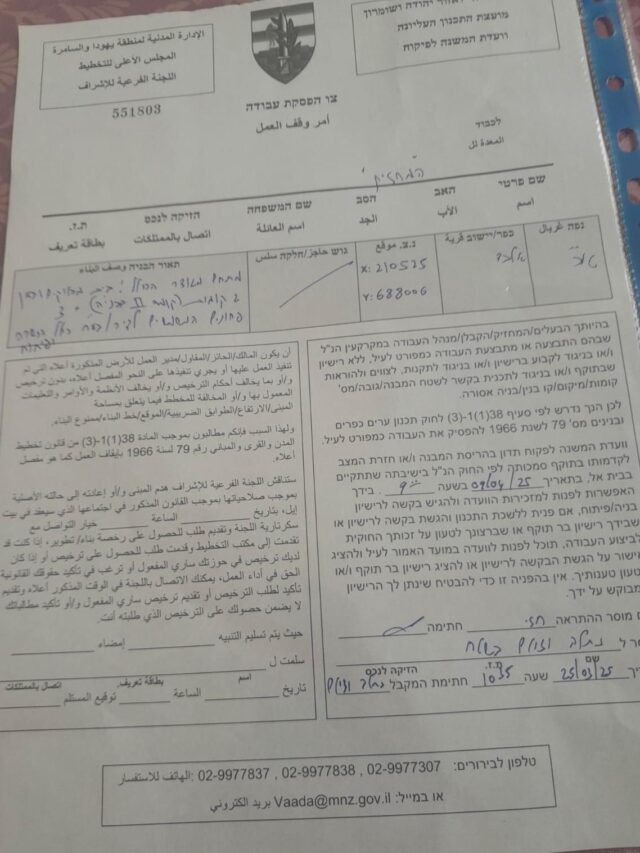 אזור יהודה ושומרון
מועצת התכנון העליונה
וועדת המשנה לפיקוח
الإدارة المدنية لمنطقة يهودا والسامرة
المجلس الأعلى للتخطيط
اللجنة الفرعية للإشراف
551803
צו הפסקת עבודה
أمر وقف العمل
לכבוד
המחזיק
שם פרטי האב הסב שם המשפחה הזיקה לנכס ת.ז.
اسم الأب الجد اسم العائلة اتصال بالممتلكات بطاقة تعريف
כפר/יישוב قرية
נ.צ. מוקע
X: 210525
Y: 688006
גוש حاجز/חלקה
תאור הבניה وصف البناء
בהיותך הבעלים/המחזיק/הקבלן/מנהל העבודה במקרקעין הנ"ל
שבהם התבצעה או מתבצעת העבודה כמפורט לעיל, ללא רישיון
ו/או בניגוד לקבוע ברישיון ו/או בניגוד לתקנות, לצווים ולהוראות
שבתוקף ו/או בניגוד לתכנית בקשר לשטח המבנה/גובה/מס'
קומות/מיקום/קו בנין/בניה אסורה.
לכן הנך נדרש לפי סעיף 38(1)-(3) לחוק תכנון ערים כפרים
ובנינים מס' 79 לשנת 1966 להפסיק את העבודה כמפורט לעיל.
וועדת המשנה לפקוח תדון בהריסת המבנה ו/או חזרת המצב
לקדמותו בתוקף סמכותה לפי החוק הנ"ל בישיבתה שתתקיים
בבית אל, בתאריך 09/04/25 בשעה 9 בידך
האפשרות לפנות למזכירות הוועדה ולהגיש בקשה לרישיון
בניה/פיתוח, אם פנית ללשכת התכנון והגשת בקשה לרישיון או
שבידך רישיון בר תוקף או שברצונך לטעון על זכותך החוקית
לביצוע העבודה, תוכל לפנות לוועדה במועד האמור לעיל ולהציג
אישור על הגשת הבקשה לרישיון או להציג רישיון בר תוקף ו/או
טעון טענותיך. אין בהפניה זו כדי להבטיח שינתן לך הרישיון
מבוקש על ידך.
מוסר ההתראה חתימה
שם ת.ז. הזיקה לנכס
25/03/25 שעה 10:35 חתימת המקבל
أن يكون المالك/الحائز/المقاول/مدير العمل للأرض المذكورة أعلاه التي تم
تنفيذ العمل عليها أو يجري تنفيذها على النحو المفصل أعلاه، بدون ترخيص
و/أو بما يخالف أحكام الترخيص و/أو يخالف الأنظمة والأوامر والتعليمات
المعمول بها و/أو المخالفة للمخطط فيما يتعلق بمساحة
المبنى/الارتفاع/الطوابق/الموقع/خط البناء/ممنوع البناء.
ولهذا السبب فإنكم مطالبون بموجب المادة 38(1)-(3) من قانون تخطيط
المدن والقرى والمباني رقم 79 لسنة 1966 بإيقاف العمل كما هو مفصل
أعلاه.
ستناقش اللجنة الفرعية للإشراف هدم المبنى و/أو إعادته إلى حالته الأصلية
بموجب صلاحياتها بموجب القانون المذكور في اجتماعها الذي سيعقد في بيت
إيل، بتاريخ الساعة خيار التواصل مع
سكرتارية اللجنة وتقديم طلب للحصول على رخصة بناء/تطوير، إذا كنت قد
تقدمت إلى مكتب التخطيط وقدمت طلب للحصول على ترخيص أو إذا كان
لديك ترخيص في حوزتك ساري المفعول أو ترغب في تأكيد حقوقك القانونية
الحق في أداء العمل، يمكنك الاتصال باللجنة في الوقت المذكور أعلاه وتقديم
تأكيد لطلب الترخيص أو تقديم ترخيص ساري المفعول و/أو تأكيد مطالباتك
لا يضمن حصولك على الترخيص الذي طلبته أنت.
حيث يتم تسليم التنبيه إمضاء
سلمت ل
اسم بطاقة تعريف اتصال بالممتلكات
تاريخ الساعة توقيع المستلم
טלפון לבירורים: 02-9977307 , 02-9977838 , 02-9977837 الهاتف للاستفسار:
או במייל: Vaada@mnz.gov.il بريد الكتروني